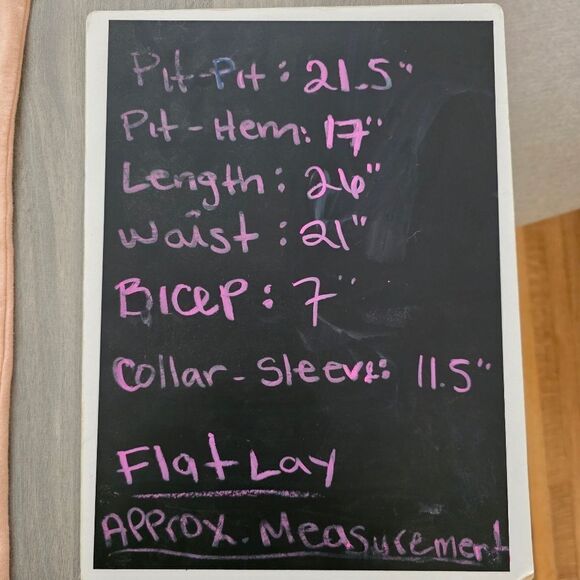 Pit-Pit: 21.5"
Pit-Hem: 17"
Length: 26"
Waist: 21"
Bicep: 7"
Collar-Sleeve: 11.5"
Flat Lay
Approx. Measurement